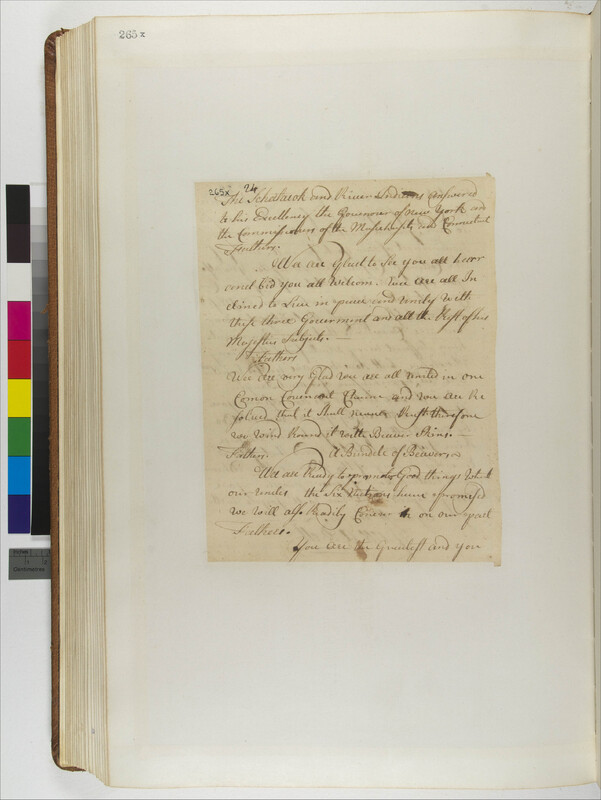 265x
265x 24
The Schatacok and River Indians answered
to his Excellency the Governour of New York and
the Commissioners of the Massachusets and Connecticut
Fathers.
We are Glad to See you all heer
and bid you all Wilcom. Wee are all In
clined to Live in peace and unity With
these three Goverment and all the Rest of his
Majesties Subjects. —
Fathers
We are very Glad You are all united in one
Comon Covenant Chaine and we are Re
solved that it Shall never Rust therefore
we Wind Round it with Beaver Skins. —
Fathers. A Bundle of Beavers
We are Ready to Good things What
our uncles the Six Nations have promised
we will also Readily Concur on our part
Fathers.
You are the greatest and you